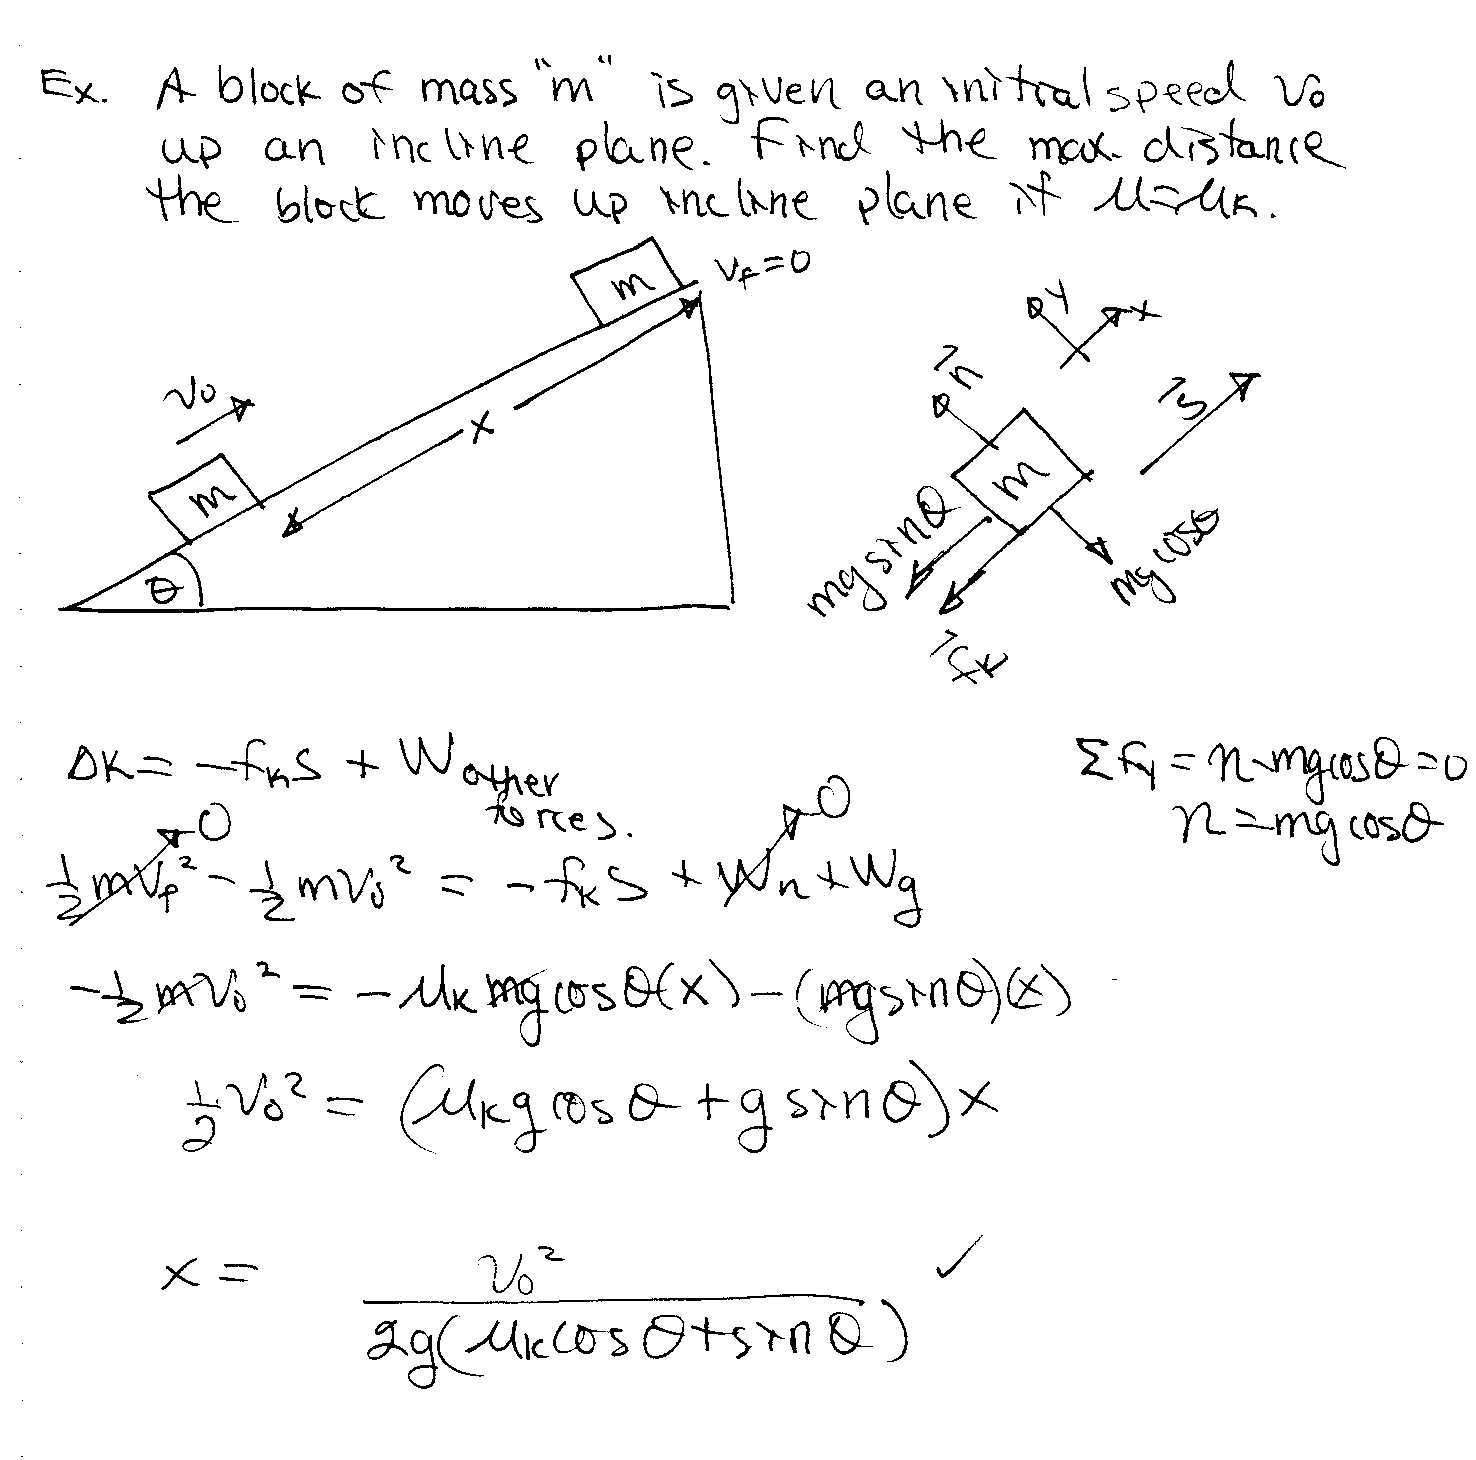 Ex. A block of mass "m" is given an initial speed v₀
up an incline plane. Find the max. distance
the block moves up incline plane if μ=μₖ.
m
v_f=0
v₀
x
m
θ
y
x
n⃗
s⃗
m
mg sinθ
mg cosθ
f⃗ₖ
ΔK = -fₖs + W other forces.
ΣF_y = n - mg cosθ = 0
n = mg cosθ
0
0
½mv_f² - ½mv₀² = -fₖs + Wₙ + W_g
-½mv₀² = -μₖ mg cosθ(x) - (mg sinθ)(x)
½v₀² = (μₖg cosθ + g sinθ)x
x = v₀² / 2g(μₖcosθ + sinθ) ✓